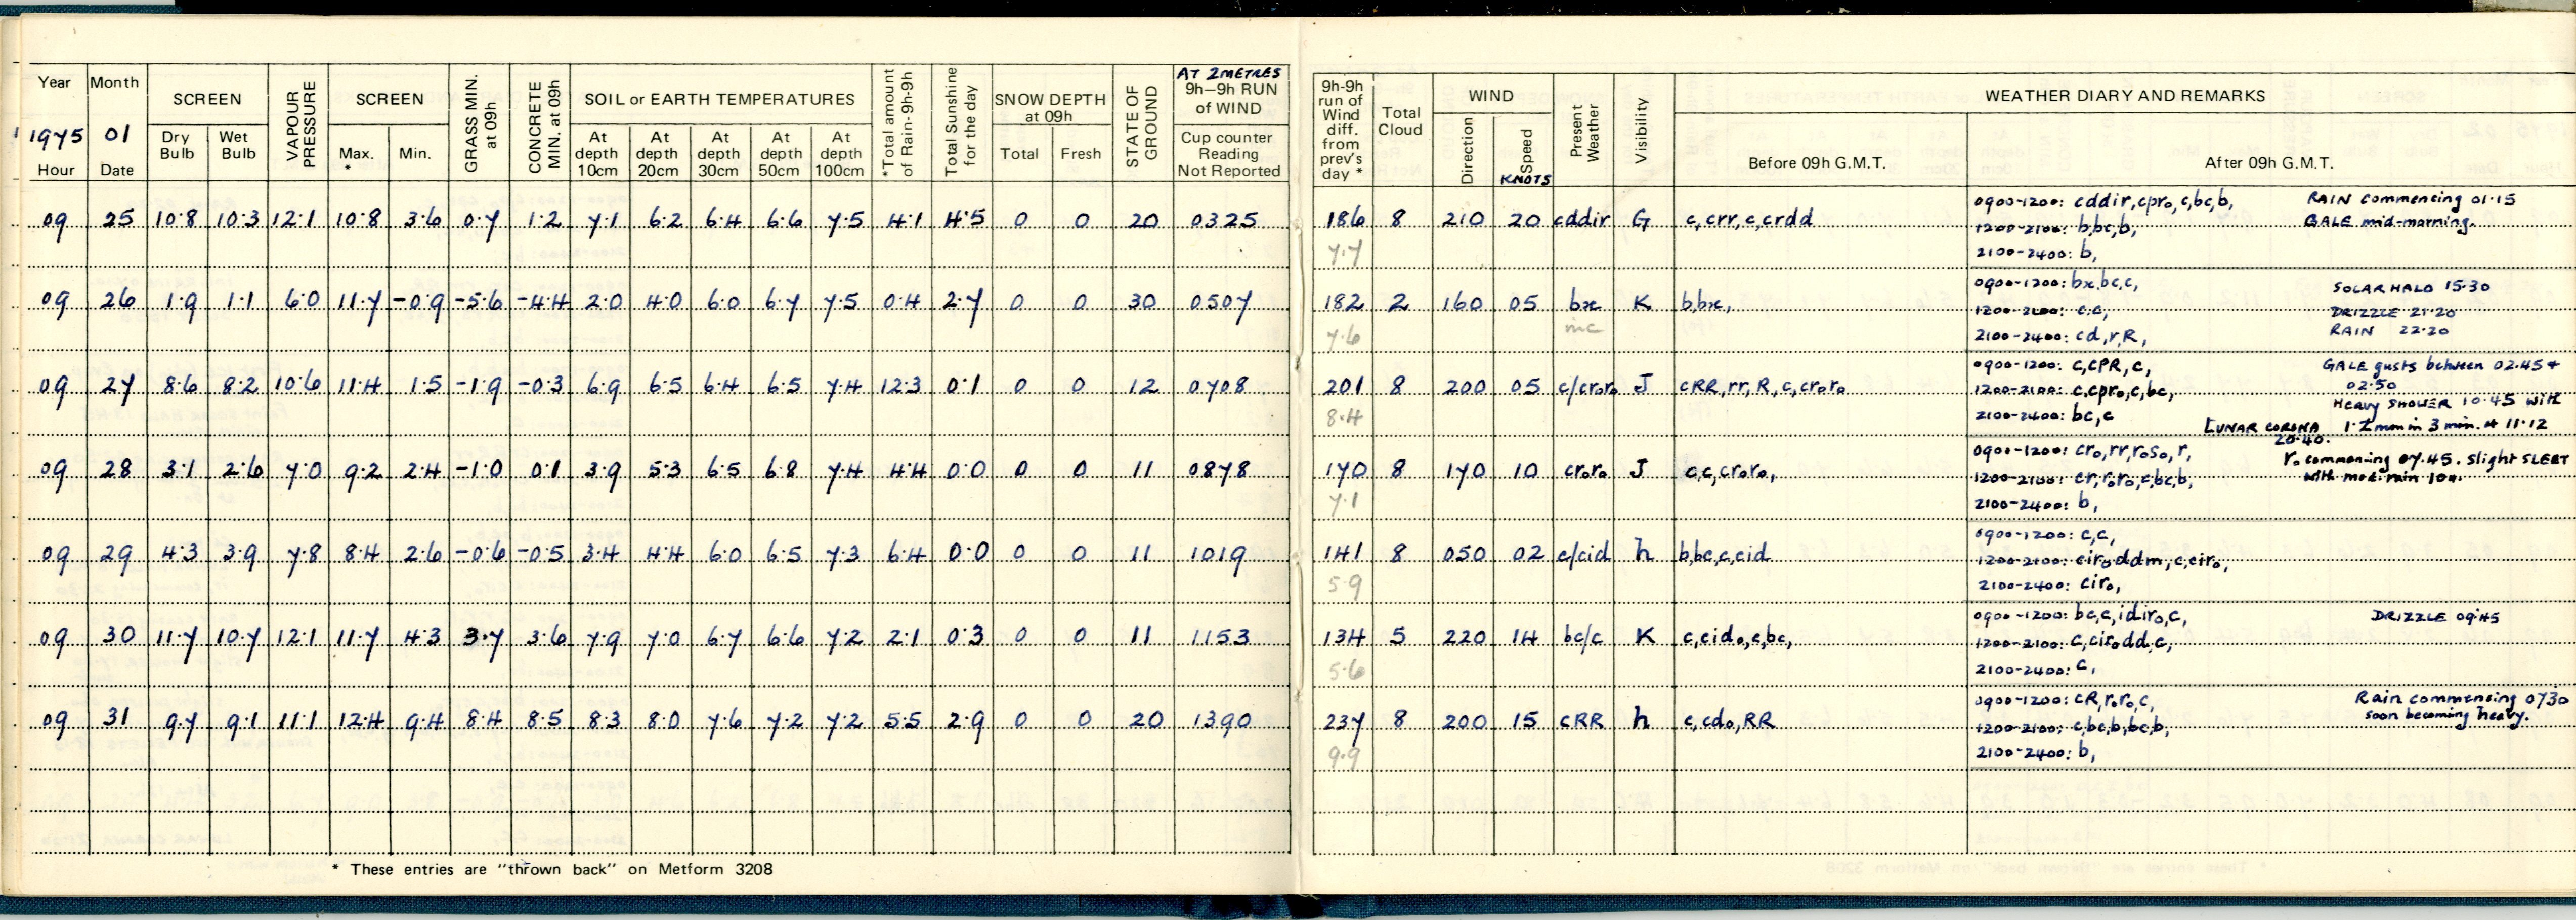 Year Month SCREEN VAPOUR PRESSURE SCREEN GRASS MIN. at 09h CONCRETE MIN. at 09h SOIL or EARTH TEMPERATURES *Total amount of Rain-9h-9h Total Sunshine for the day SNOW DEPTH at 09h STATE OF GROUND AT 2METRES 9h-9h RUN of WIND
1975 01 Dry Bulb Wet Bulb Max. * Min. At depth 10cm At depth 20cm At depth 30cm At depth 50cm At depth 100cm Total Fresh Cup counter Reading Not Reported
Hour Date
09 25 10.8 10.3 12.1 10.8 3.6 0.7 1.2 7.1 6.2 6.4 6.6 7.5 4.1 4.5 0 0 20 0325
09 26 1.9 1.1 6.0 11.7 -0.9 -5.6 -4.4 2.0 4.0 6.0 6.7 7.5 0.4 2.7 0 0 30 0507
09 27 8.6 8.2 10.6 11.4 1.5 -1.9 -0.3 6.9 6.5 6.4 6.5 7.4 12.3 0.1 0 0 12 0708
09 28 3.1 2.6 7.0 9.2 2.4 -1.0 0.1 3.9 5.3 6.5 6.8 7.4 4.4 0.0 0 0 11 0878
09 29 4.3 3.9 7.8 8.4 2.6 -0.6 -0.5 3.4 4.4 6.0 6.5 7.3 6.4 0.0 0 0 11 1019
09 30 11.7 10.7 12.1 11.7 4.3 3.7 3.6 7.9 7.0 6.7 6.6 7.2 2.1 0.3 0 0 11 1153
09 31 9.7 9.1 11.1 12.4 9.4 8.4 8.5 8.3 8.0 7.6 7.2 7.2 5.5 2.9 0 0 20 1390
* These entries are "thrown back" on Metform 3208
9h-9h run of Wind diff. from prev's day * Total Cloud WIND Present Weather Visibility WEATHER DIARY AND REMARKS
Direction Speed KNOTS Before 09h G.M.T. After 09h G.M.T.
186 8 210 20 cddir G c,crr,c,crdd 0900-1200: cddir,cpro,c,bc,b, RAIN commencing 01.15
7.7 1200-2100: b,bc,b, GALE mid-morning.
2100-2400: b,
182 2 160 05 bx K b,bx, 0900-1200: bx,bc,c, SOLAR HALO 15.30
7.6 mc 1200-2100: c,c, DRIZZLE 21.20
2100-2400: cd,r,R, RAIN 22.20
201 8 200 05 c/croro J cRR,rr,R,c,croro 0900-1200: c,cPR,c, GALE gusts between 02.45 +
8.4 1200-2100: c,cpro,c,bc, 02.50
2100-2400: bc,c HEAVY SHOWER 10.45 with
LUNAR CORONA 1.2mm in 3 min. at 11.12
20.40.
170 8 170 10 croro J c,c,croro, 0900-1200: cro,rr,roso,r, ro commencing 07.45. slight SLEET
7.1 1200-2100: cr,roro,c,bc,b, with mod. rain
2100-2400: b,
141 8 050 02 c/cid h b,bc,c,cid 0900-1200: c,c,
5.9 1200-2100: ciro,ddm,c,ciro,
2100-2400: ciro,
134 5 220 14 bc/c K c,cido,c,bc, 0900-1200: bc,c,idiro,c, DRIZZLE 09.45
5.6 1200-2100: c,ciro,dd,c,
2100-2400: c,
237 8 200 15 cRR h c,cdo,RR 0900-1200: cR,roro,c, Rain commencing 0730
9.9 1200-2100: c,bc,b,bc,b, soon becoming heavy.
2100-2400: b,